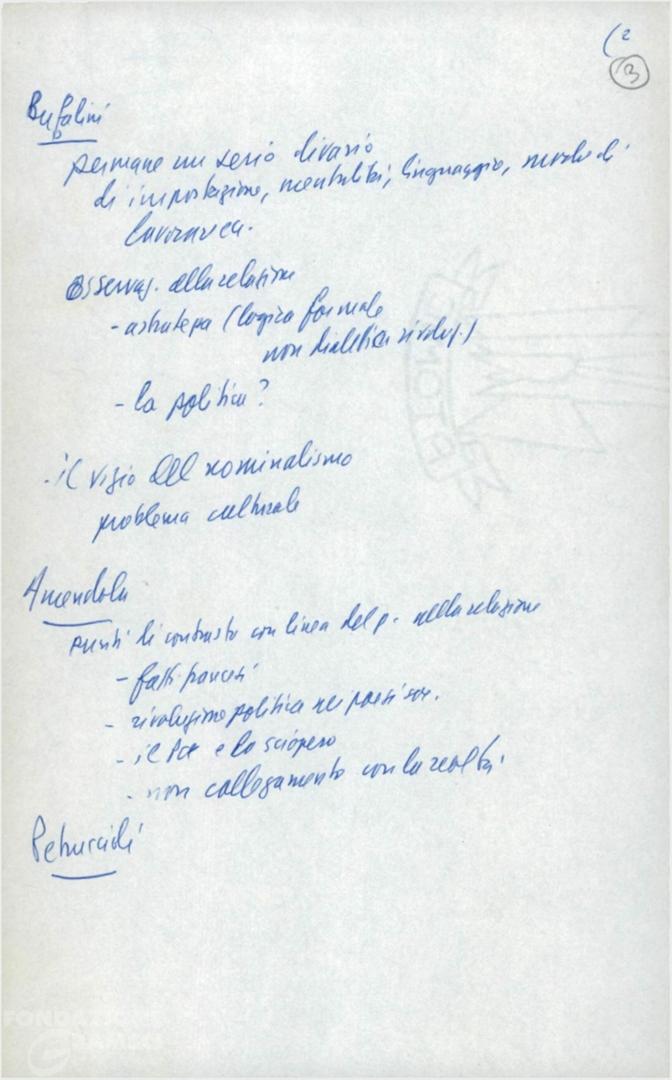 (2
3
Bufalini
permane un serio divario
di impostazione, mentalità, linguaggio, modo di
lavorare.
osservaz. alla relazione
- astratezza (logica formale
non dialettica rivoluz.)
- la politica?
- il vizio del nominalismo
problema culturale
Amendola
punti di contrasto con linea del p. nella relazione
- fatti francesi
- rivoluzione politica nei paesi soc.
- il Pcf e lo sciopero
- non collegamento con la realtà.
Petruccioli
FONDAZIONE
GRAMSCI